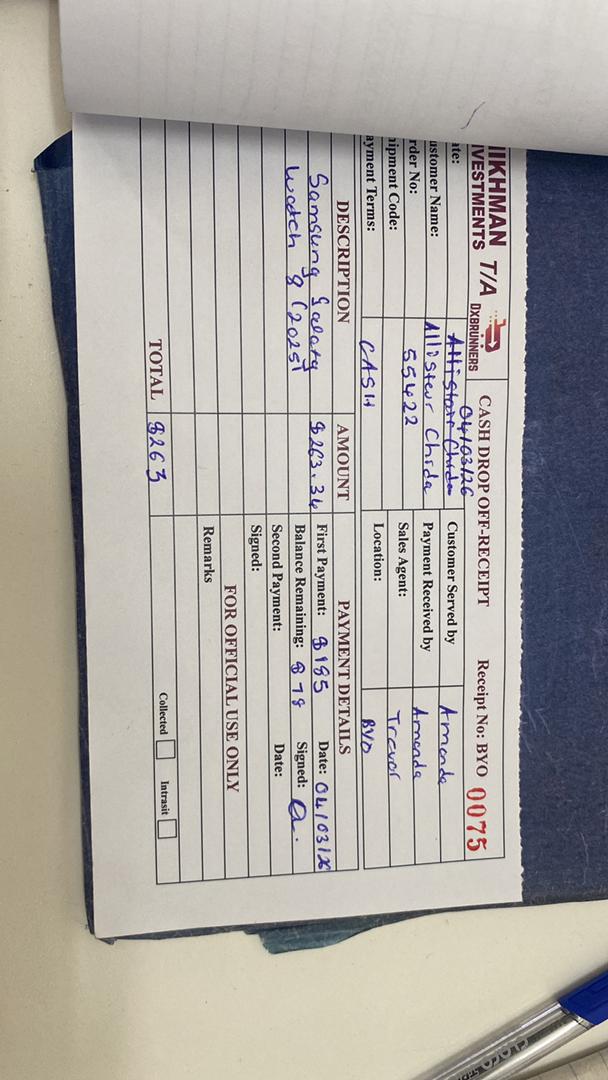 IIKHMAN T/A
VESTMENTS
DXBRUNNERS
CASH DROP OFF-RECEIPT
Receipt No: BYO 0075
ate: 04/03/26
Customer Served by Amanda
ustomer Name: Allisteur Chirda
Payment Received by Amanda
rder No: 55422
Sales Agent: Trevor
hipment Code:
Location: BYO
ayment Terms: CASH
DESCRIPTION AMOUNT PAYMENT DETAILS
Samsung Galaxy $263.34 First Payment: $185 Date: 04/03/26
Watch 8 (2025) Balance Remaining: $78 Signed: a.
Second Payment: Date:
Signed:
FOR OFFICIAL USE ONLY
Remarks
TOTAL $263 Collected Intrasit